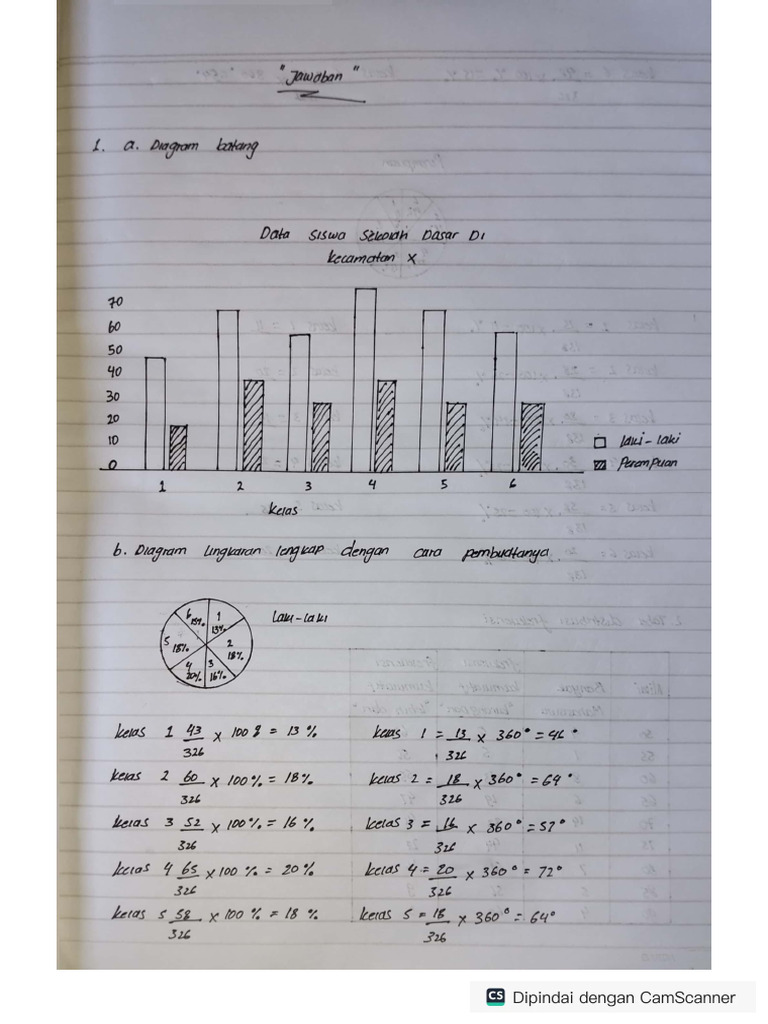 "Jawaban"
1. a. Diagram batang
Data Siswa Sekolah Dasar Di
Kecamatan X
70
60
50
40
30
20
10
0
1 2 3 4 5 6
Kelas
Laki-laki
Perempuan
b. Diagram lingkaran lengkap dengan cara pembuatanya.
Laki-laki
1 13%
2 18%
3 16%
4 20%
5 18%
6 15%
Kelas 1 43/326 x 100 % = 13 % Kelas 1 = 13/326 x 360° = 46°
Kelas 2 60/326 x 100% = 18% Kelas 2 = 18/326 x 360° = 64°
Kelas 3 52/326 x 100% = 16% Kelas 3 = 16/326 x 360° = 57°
Kelas 4 65/326 x 100 % = 20% Kelas 4 = 20/326 x 360° = 72°
Kelas 5 58/326 x 100 % = 18 % Kelas 5 = 18/326 x 360° = 64°
CS Dipindai dengan CamScanner